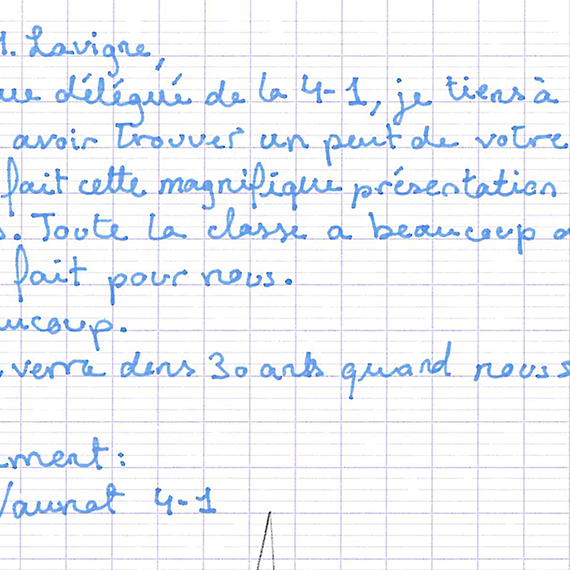 M. Lavigne,
que délégué de la 4-1, je tiens à
avoir trouver un peut de votre
fait cette magnifique présentation
s. Toute la classe a beaucoup a
fait pour nous.
aucoup.
verra dans 30 ans quand nous s
ment:
Vaunat 4-1